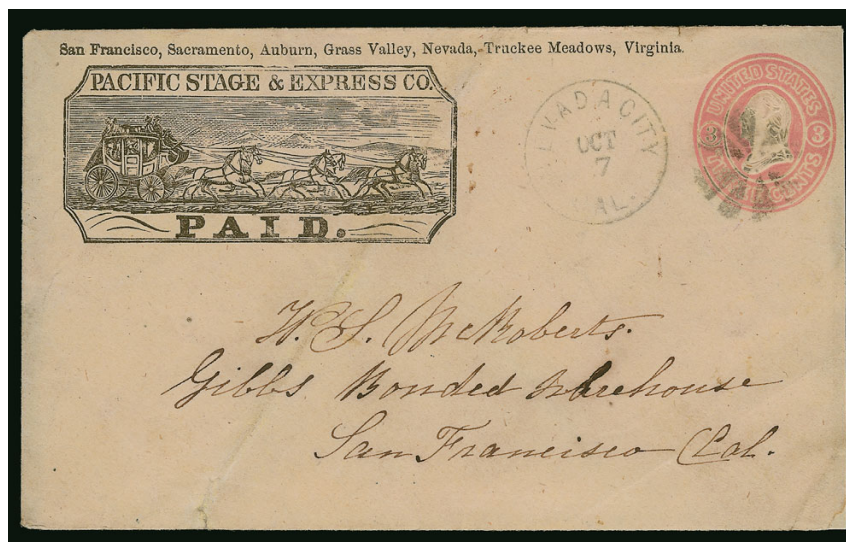 San Francisco, Sacramento, Auburn, Grass Valley, Nevada, Truckee Meadows, Virginia.
PACIFIC STAGE & EXPRESS CO.
PAID.
NEVADA CITY
OCT
7
CAL.
UNITED STATES
3 3
THREE CENTS
W. S. McRoberts.
Gibbs Bonded Warehouse
San Francisco Cal.